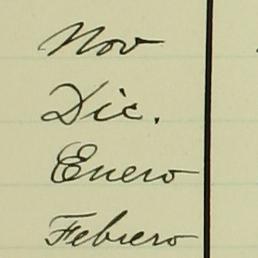 Nov
Dic.
Enero
Febrero